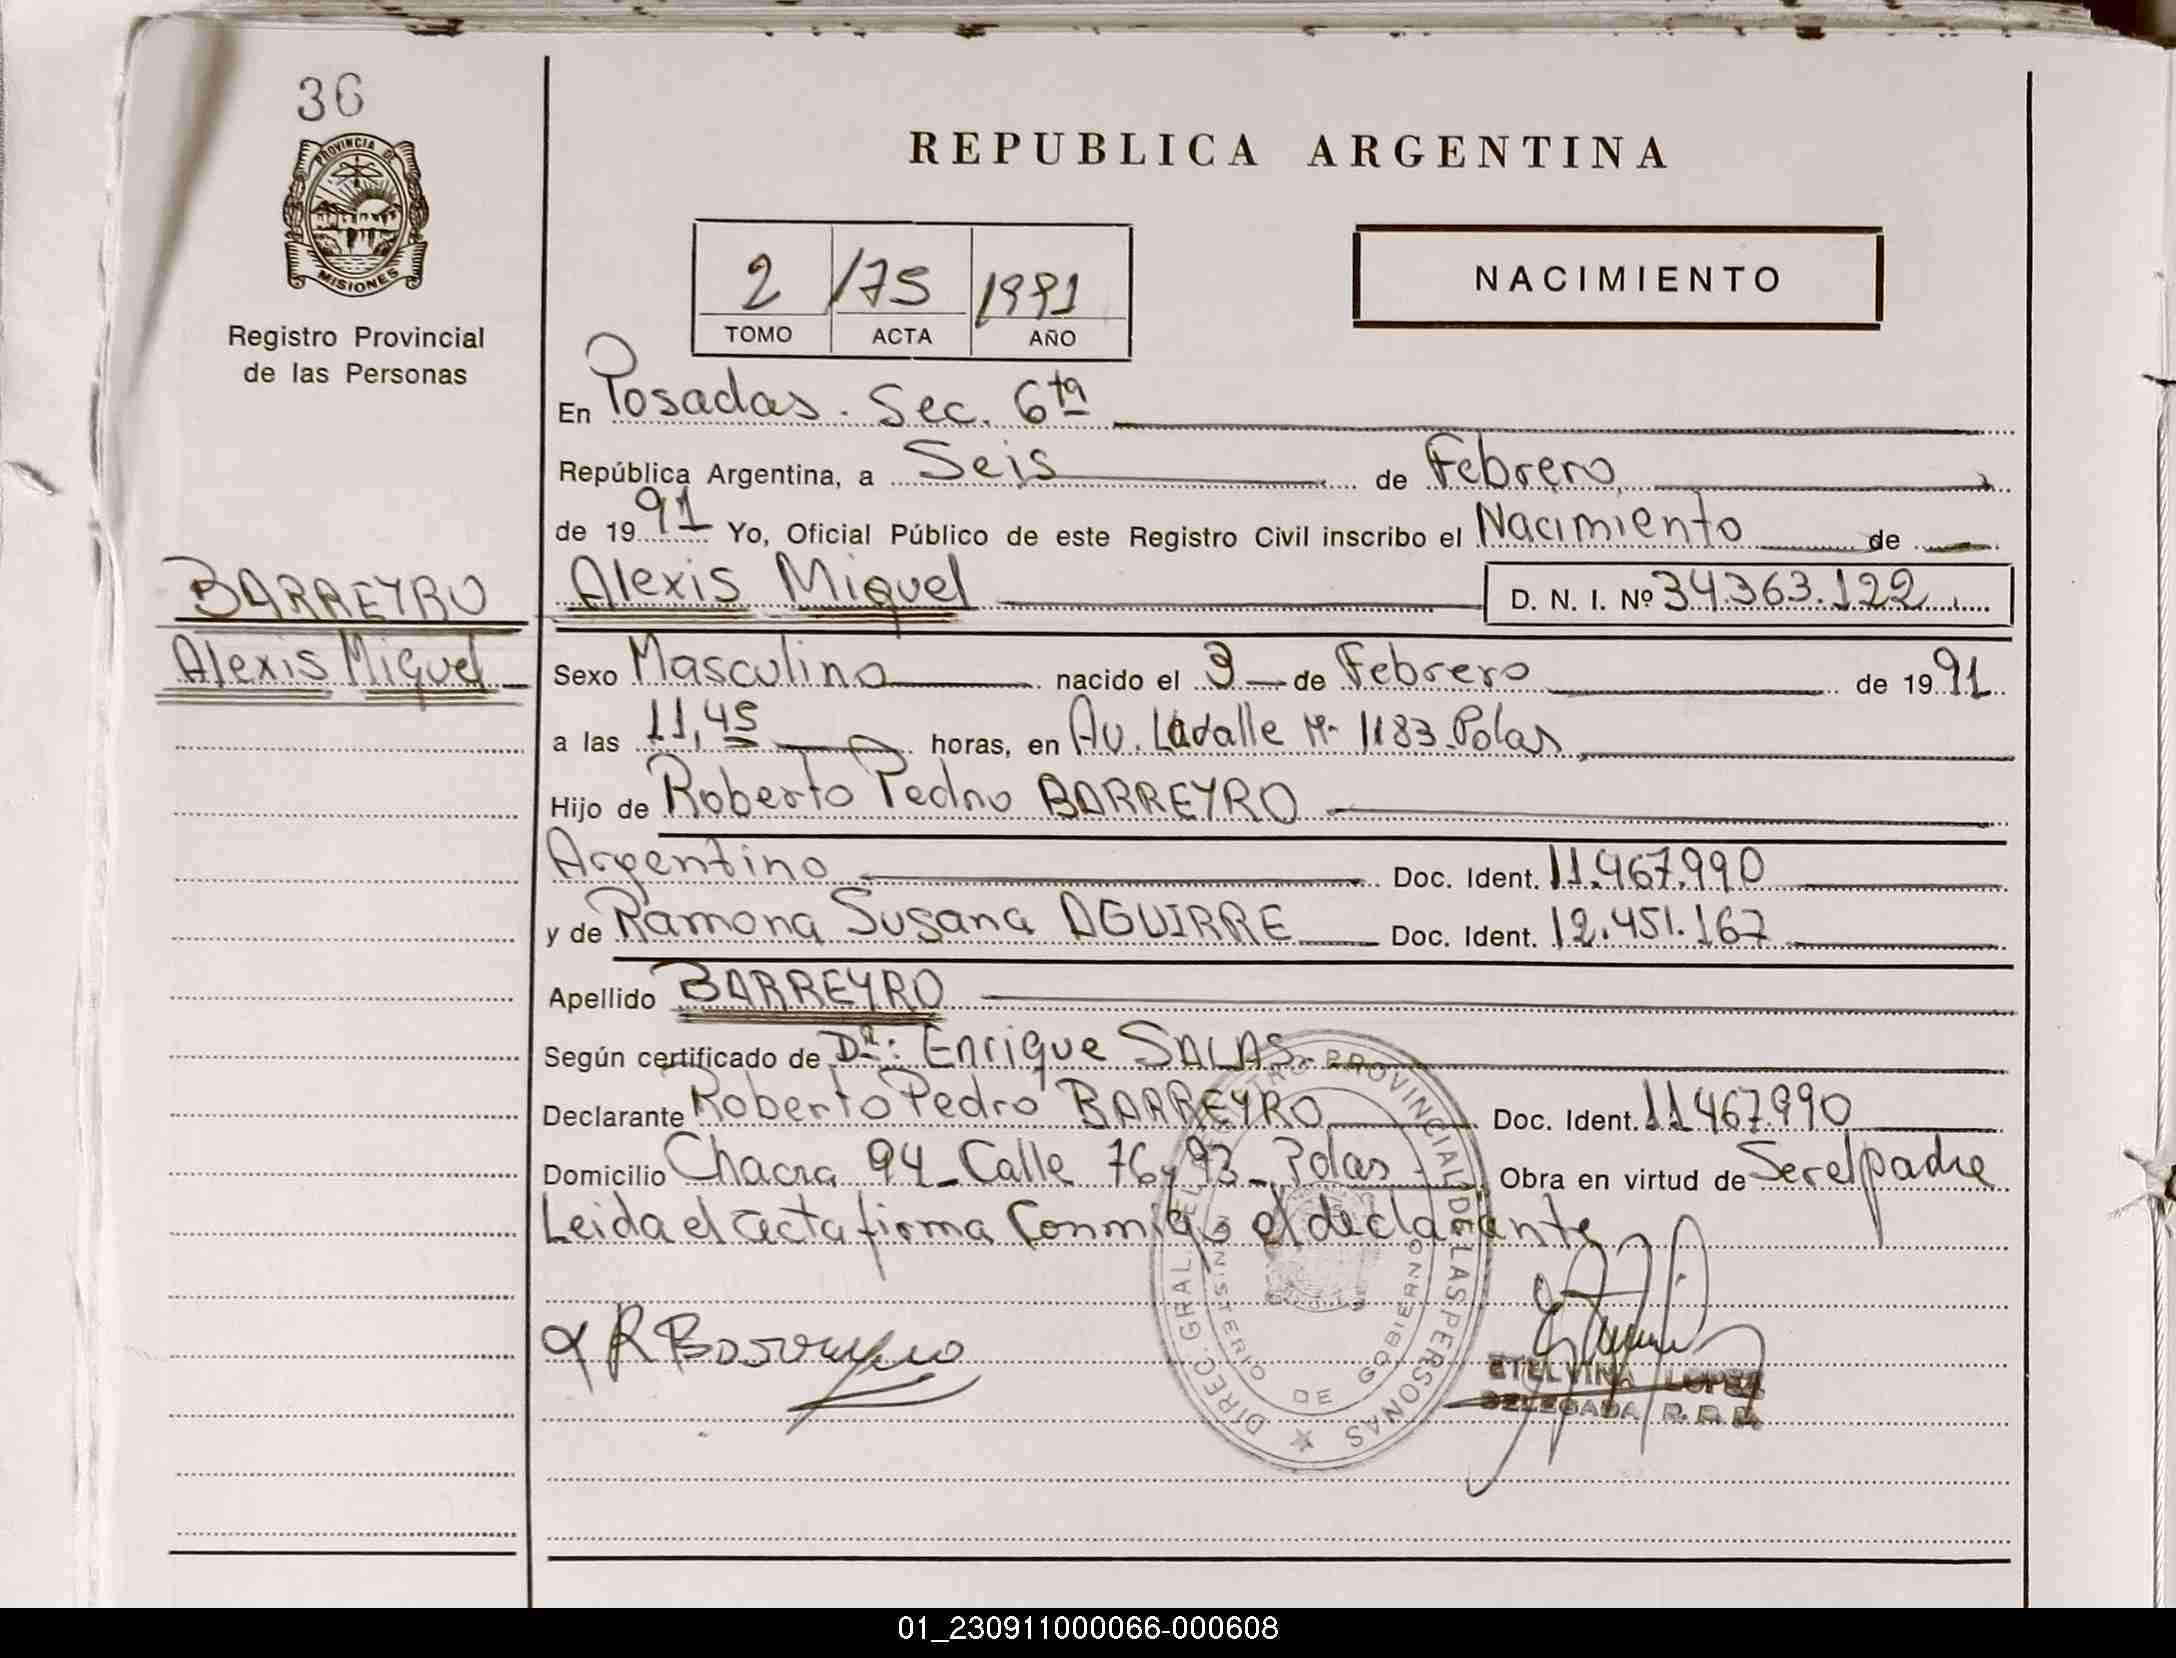 36
PROVINCIA DE
MISIONES
Registro Provincial
de las Personas
REPUBLICA ARGENTINA
2 175 1991
TOMO ACTA AÑO
NACIMIENTO
En Posadas. Sec. 6ta
República Argentina, a Seis de Febrero
de 1991 Yo, Oficial Público de este Registro Civil inscribo el Nacimiento de
BARREYRO
Alexis Miguel
Alexis Miguel D. N. I. Nº 34.363.122
Sexo Masculino nacido el 3 de Febrero de 1991
a las 11,45 horas, en Av. Lavalle Nº 1183 Pdas
Hijo de Roberto Pedro BARREYRO
Argentino Doc. Ident. 11.467.990
y de Ramona Susana AGUIRRE Doc. Ident. 12.451.167
Apellido BARREYRO
Según certificado de Dr: Enrique SALAS
Declarante Roberto Pedro BARREYRO Doc. Ident. 11467.990
Domicilio Chacra 94 - Calle 76 y 93 - Pdas - Obra en virtud de Ser el padre
Leida el acta firma Conmigo el declarante
R Barreyro
DIREC. GRAL. DEL REGISTRO PROVINCIAL DE LAS PERSONAS
MINISTERIO DE GOBIERNO
ETELVINA LOPEZ
DELEGADA R. P. P.
01_230911000066-000608